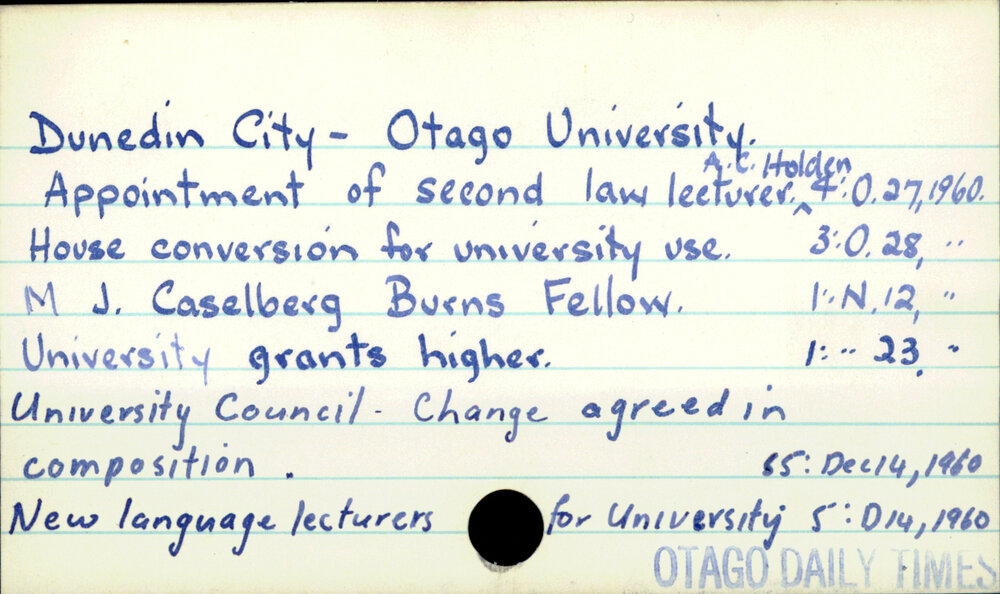 Dunedin City - Otago University.
Appointment of second law lecturer. A. C. Holden 4: O. 27, 1960.
House conversion for university use. 3: O. 28, "
M J. Caselberg Burns Fellow. 1: N. 12, "
University grants higher. 1: " 23, "
University Council - Change agreed in
composition . 65: Dec 14, 1960
New language lecturers for University 5: D 14, 1960
OTAGO DAILY TIMES